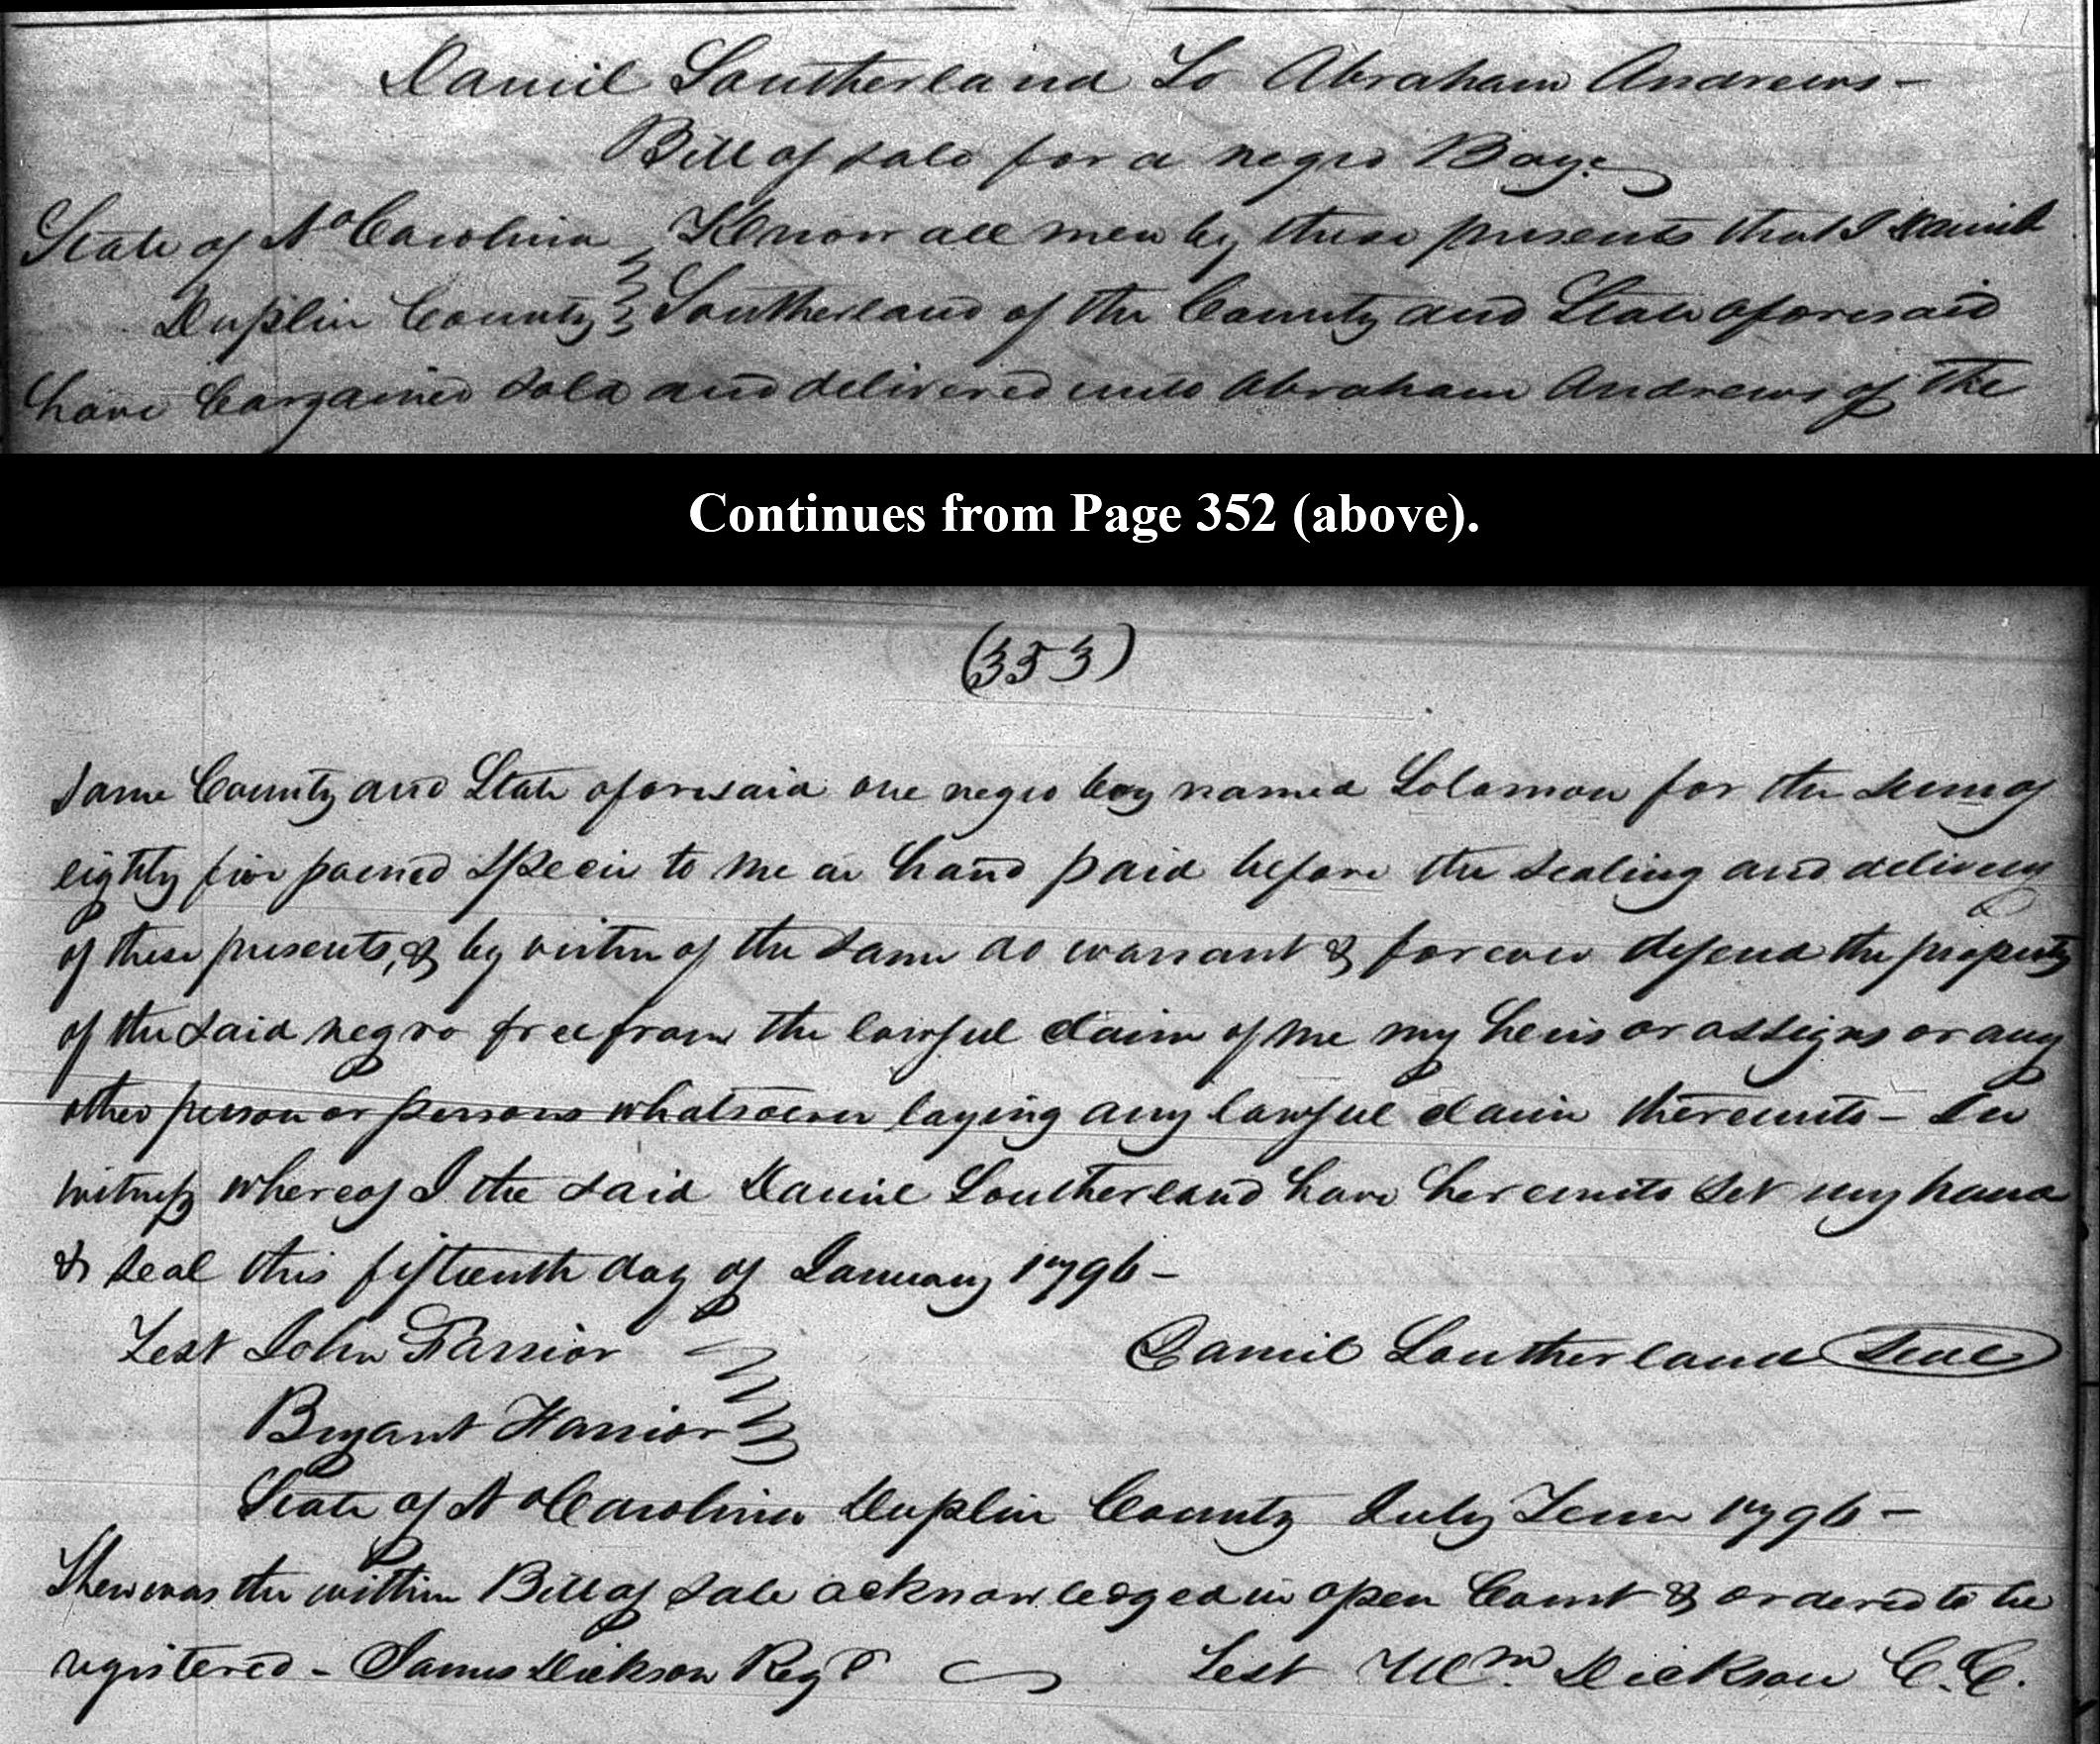 Daniel Southerland To Abraham Andrews -
Bill of sale for a negro Boy.
State of No Carolina } Know all men by these presents that I Daniel
Duplin County } Southerland of the County and State aforesaid
have bargained sold and delivered unto Abraham Andrews of the
Continues from Page 352 (above).
(353)
same County and State aforesaid one negro boy named Solomon for the sum of
eighty five pound Specie to me in hand paid before the sealing and delivery
of these presents, & by virtue of the same do warrant & forever defend the property
of the said negro free from the lawful claim of me my heirs or assigns or any
other person or persons whatsoever laying any lawful claim thereunto - In
witness whereof I the said Daniel Southerland have hereunto set my hand
& seal this fifteenth day of January 1796 -
Test John Farrior } Daniel Southerland Seal
Bryant Farrior }
State of No Carolina Duplin County July Term 1796 -
Then was the within Bill of sale acknowledged in open Court & ordered to be
registered - James Dickson Regr Test Wm. Dickson C.C.